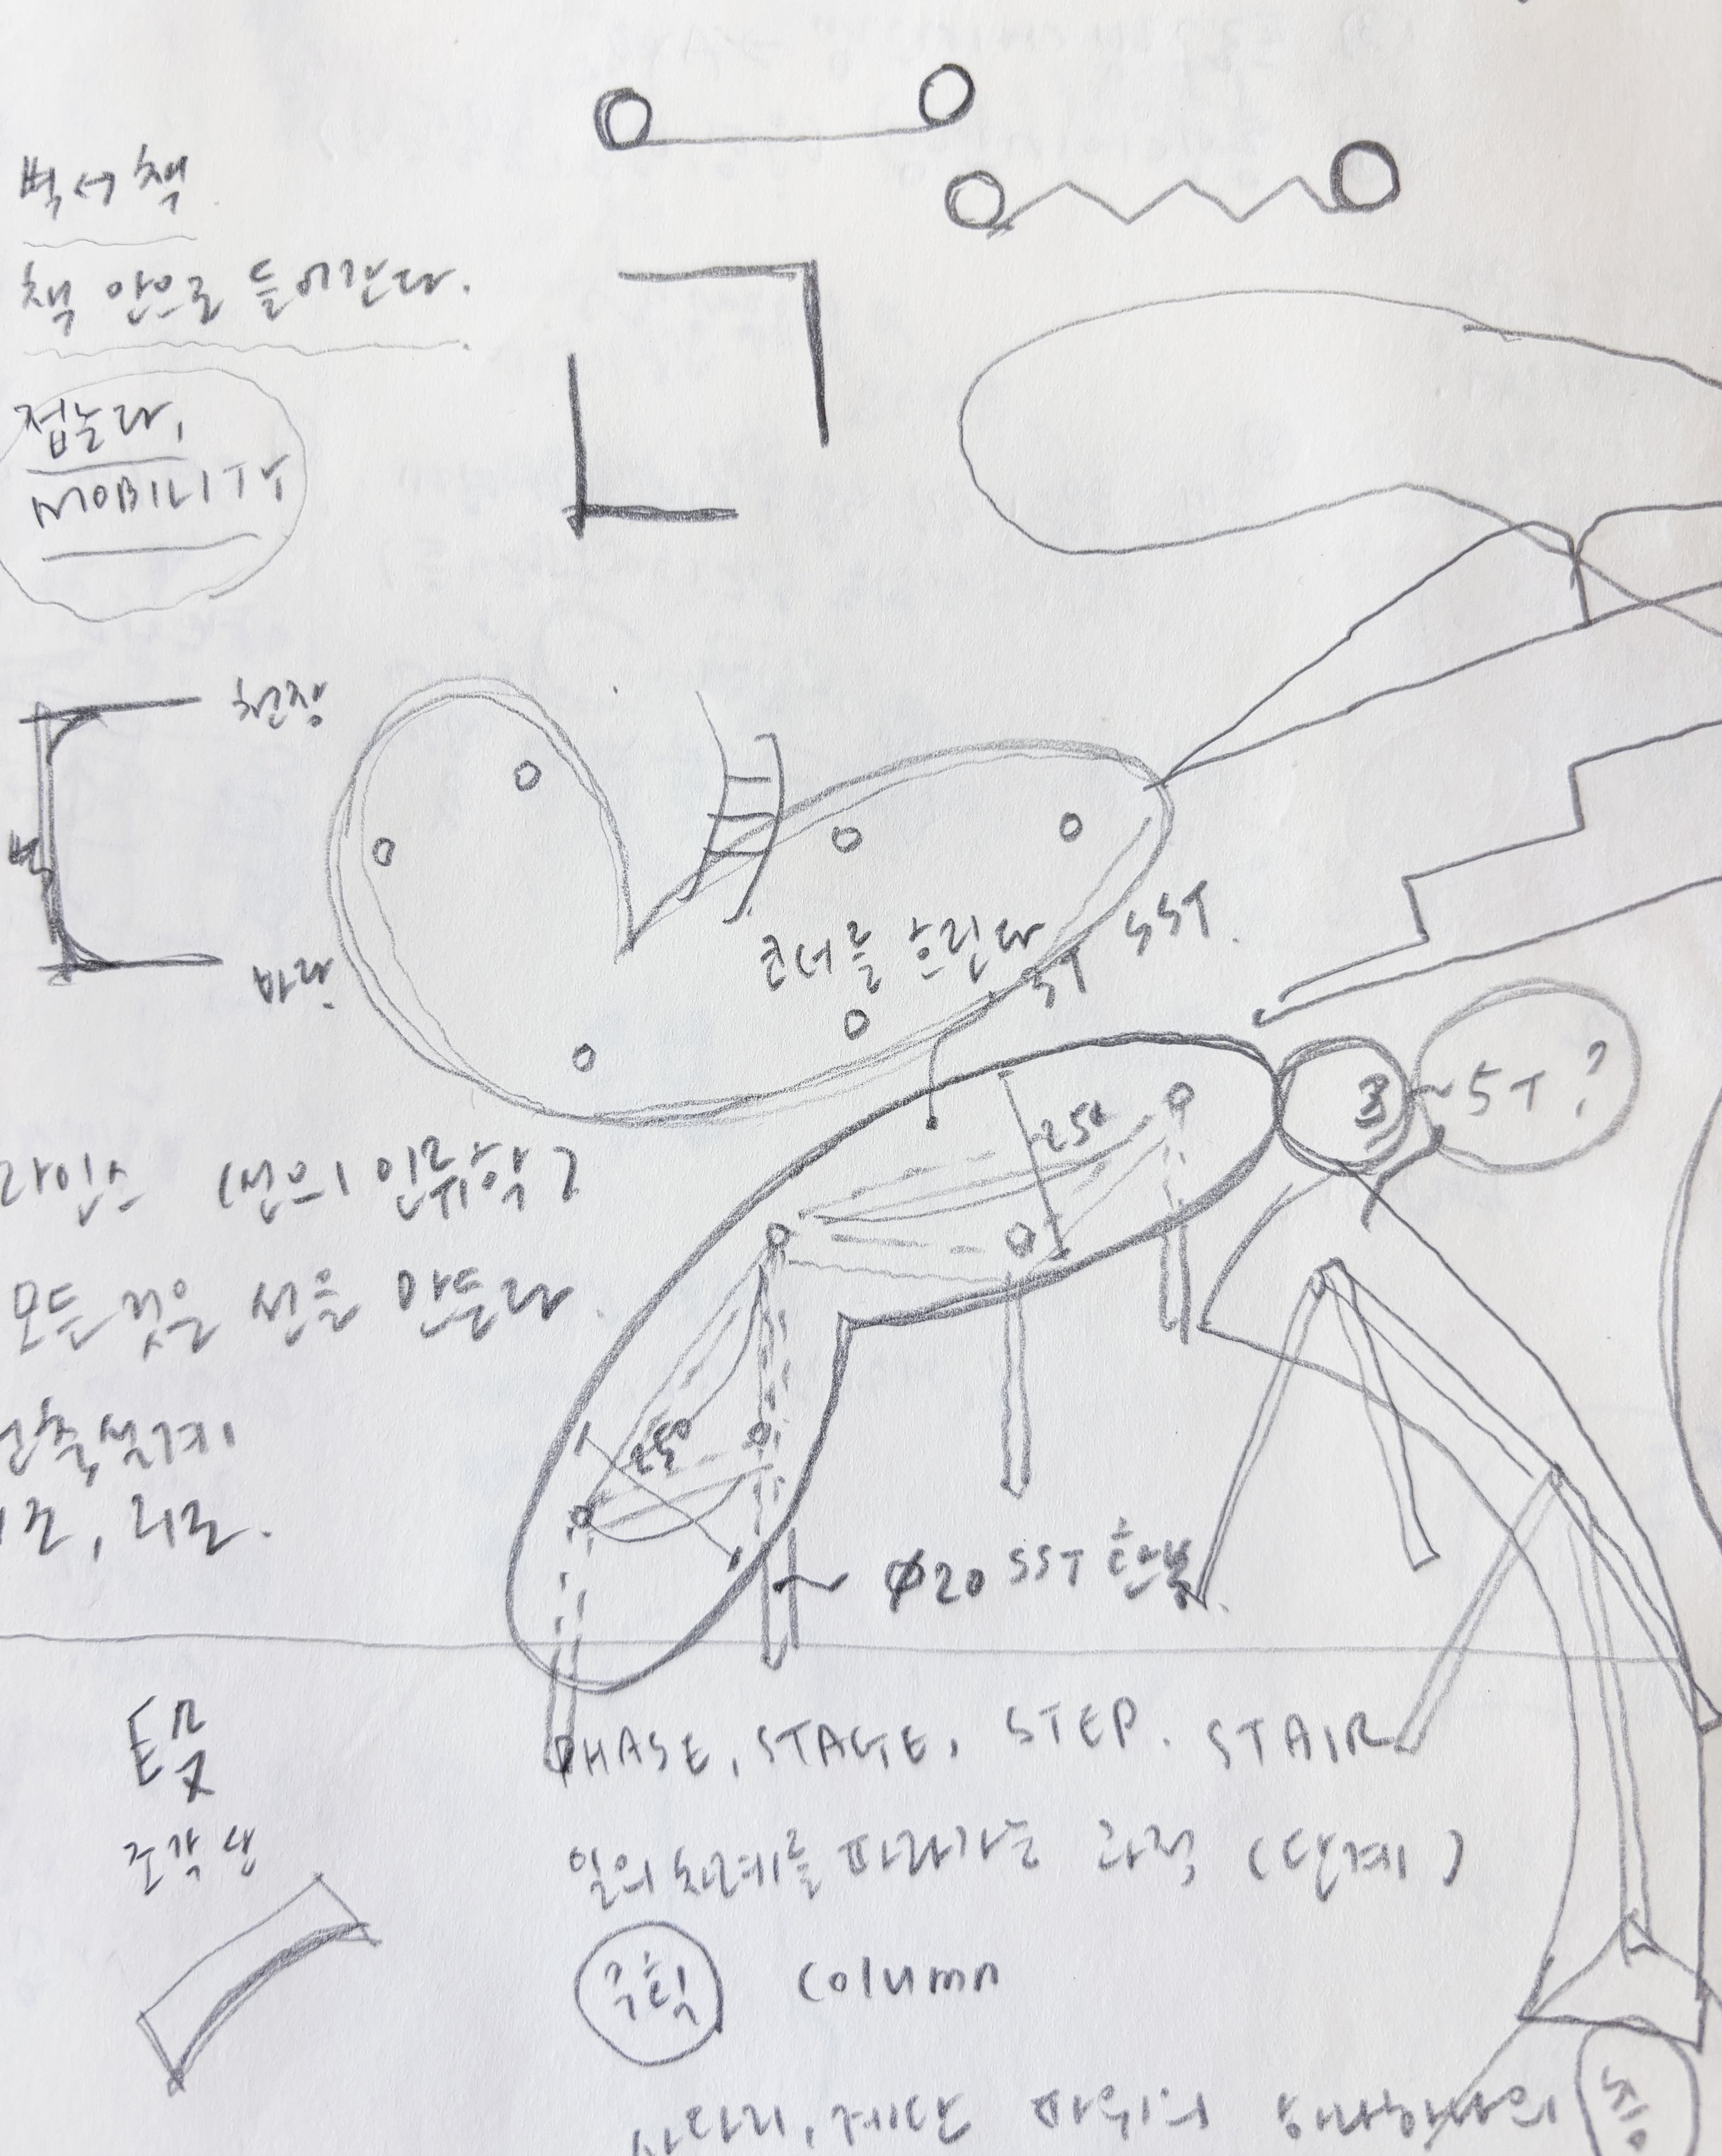 벽서책
책 안으로 들어간다.
접는다,
MOBILITY
천장
벽
바닥
코너를 흐린다
5T SST.
~5T?
250
라인스 (선의 인류학)
모든 것은 선을 만든다.
250
건축설계
Ø20 SST 환봉.
PHASE, STAGE, STEP. STAIR
조각상
일의 차례를 따라가는 과정 (단계)
구획 Column
사다리, 계단 따위의 하나하나의 층